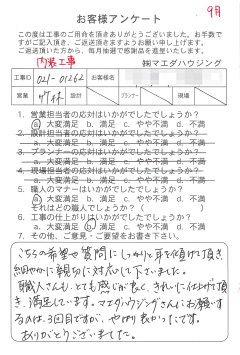 9月
お客様アンケート
この度は工事のご用命を頂きありがとうございました。お手数で
すがご記入頂き、ご返送頂きますようお願い申し上げます。
ご返送頂いた方から、毎月抽選で感謝品を進呈いたします。
㈱マエダハウジング
内装工事
工事ID 021-01262 お客様名
営業 設計 プランナー 現場
1. 営業担当者の対応はいかがでしたでしょうか?
ⓐ 大変満足 b. 満足 c. やや不満 d. 不満
2. 設計担当者の対応はいかがでしたでしょうか?
a. 大変満足 b. 満足 c. やや不満 d. 不満
3. プランナーの対応はいかがでしたでしょうか?
a. 大変満足 b. 満足 c. やや不満 d. 不満
4. 現場担当者の対応はいかがでしたでしょうか?
a. 大変満足 b. 満足 c. やや不満 d. 不満
5. 職人のマナーはいかがでしたでしょうか?
ⓐ 大変満足 b. 満足 c. やや不満 d. 不満
それはどの職人でしょうか?( )
6. 工事の仕上がりはいかがでしたでしょうか?
a. 大変満足 ⓑ 満足 c. やや不満 d. 不満
7. その他、ご意見・ご要望をお書き下さい。
こちらの希望や質問にしっかりと耳を傾けて頂き
細やかに親身に対応して下さいました。
職人さんも、とても感じが良く、きれいに仕上げて頂
き、満足しています。マエダハウジングさんにお願いす
るのは、3回目ですが、やはり良かったです。
ありがとうございました。